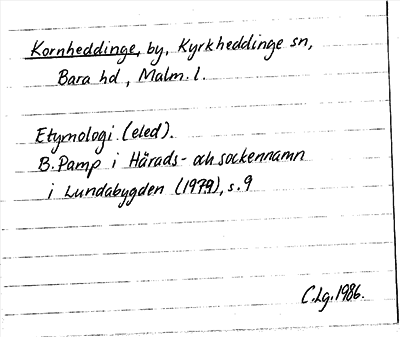 Kornheddinge, by, Kyrkheddinge sn,
Bara hd, Malm. l.
Etymologi (eled).
B. Pamp i Härads- och sockennamn
i Lundabygden (1979), s. 9
C. Lg. 1986.